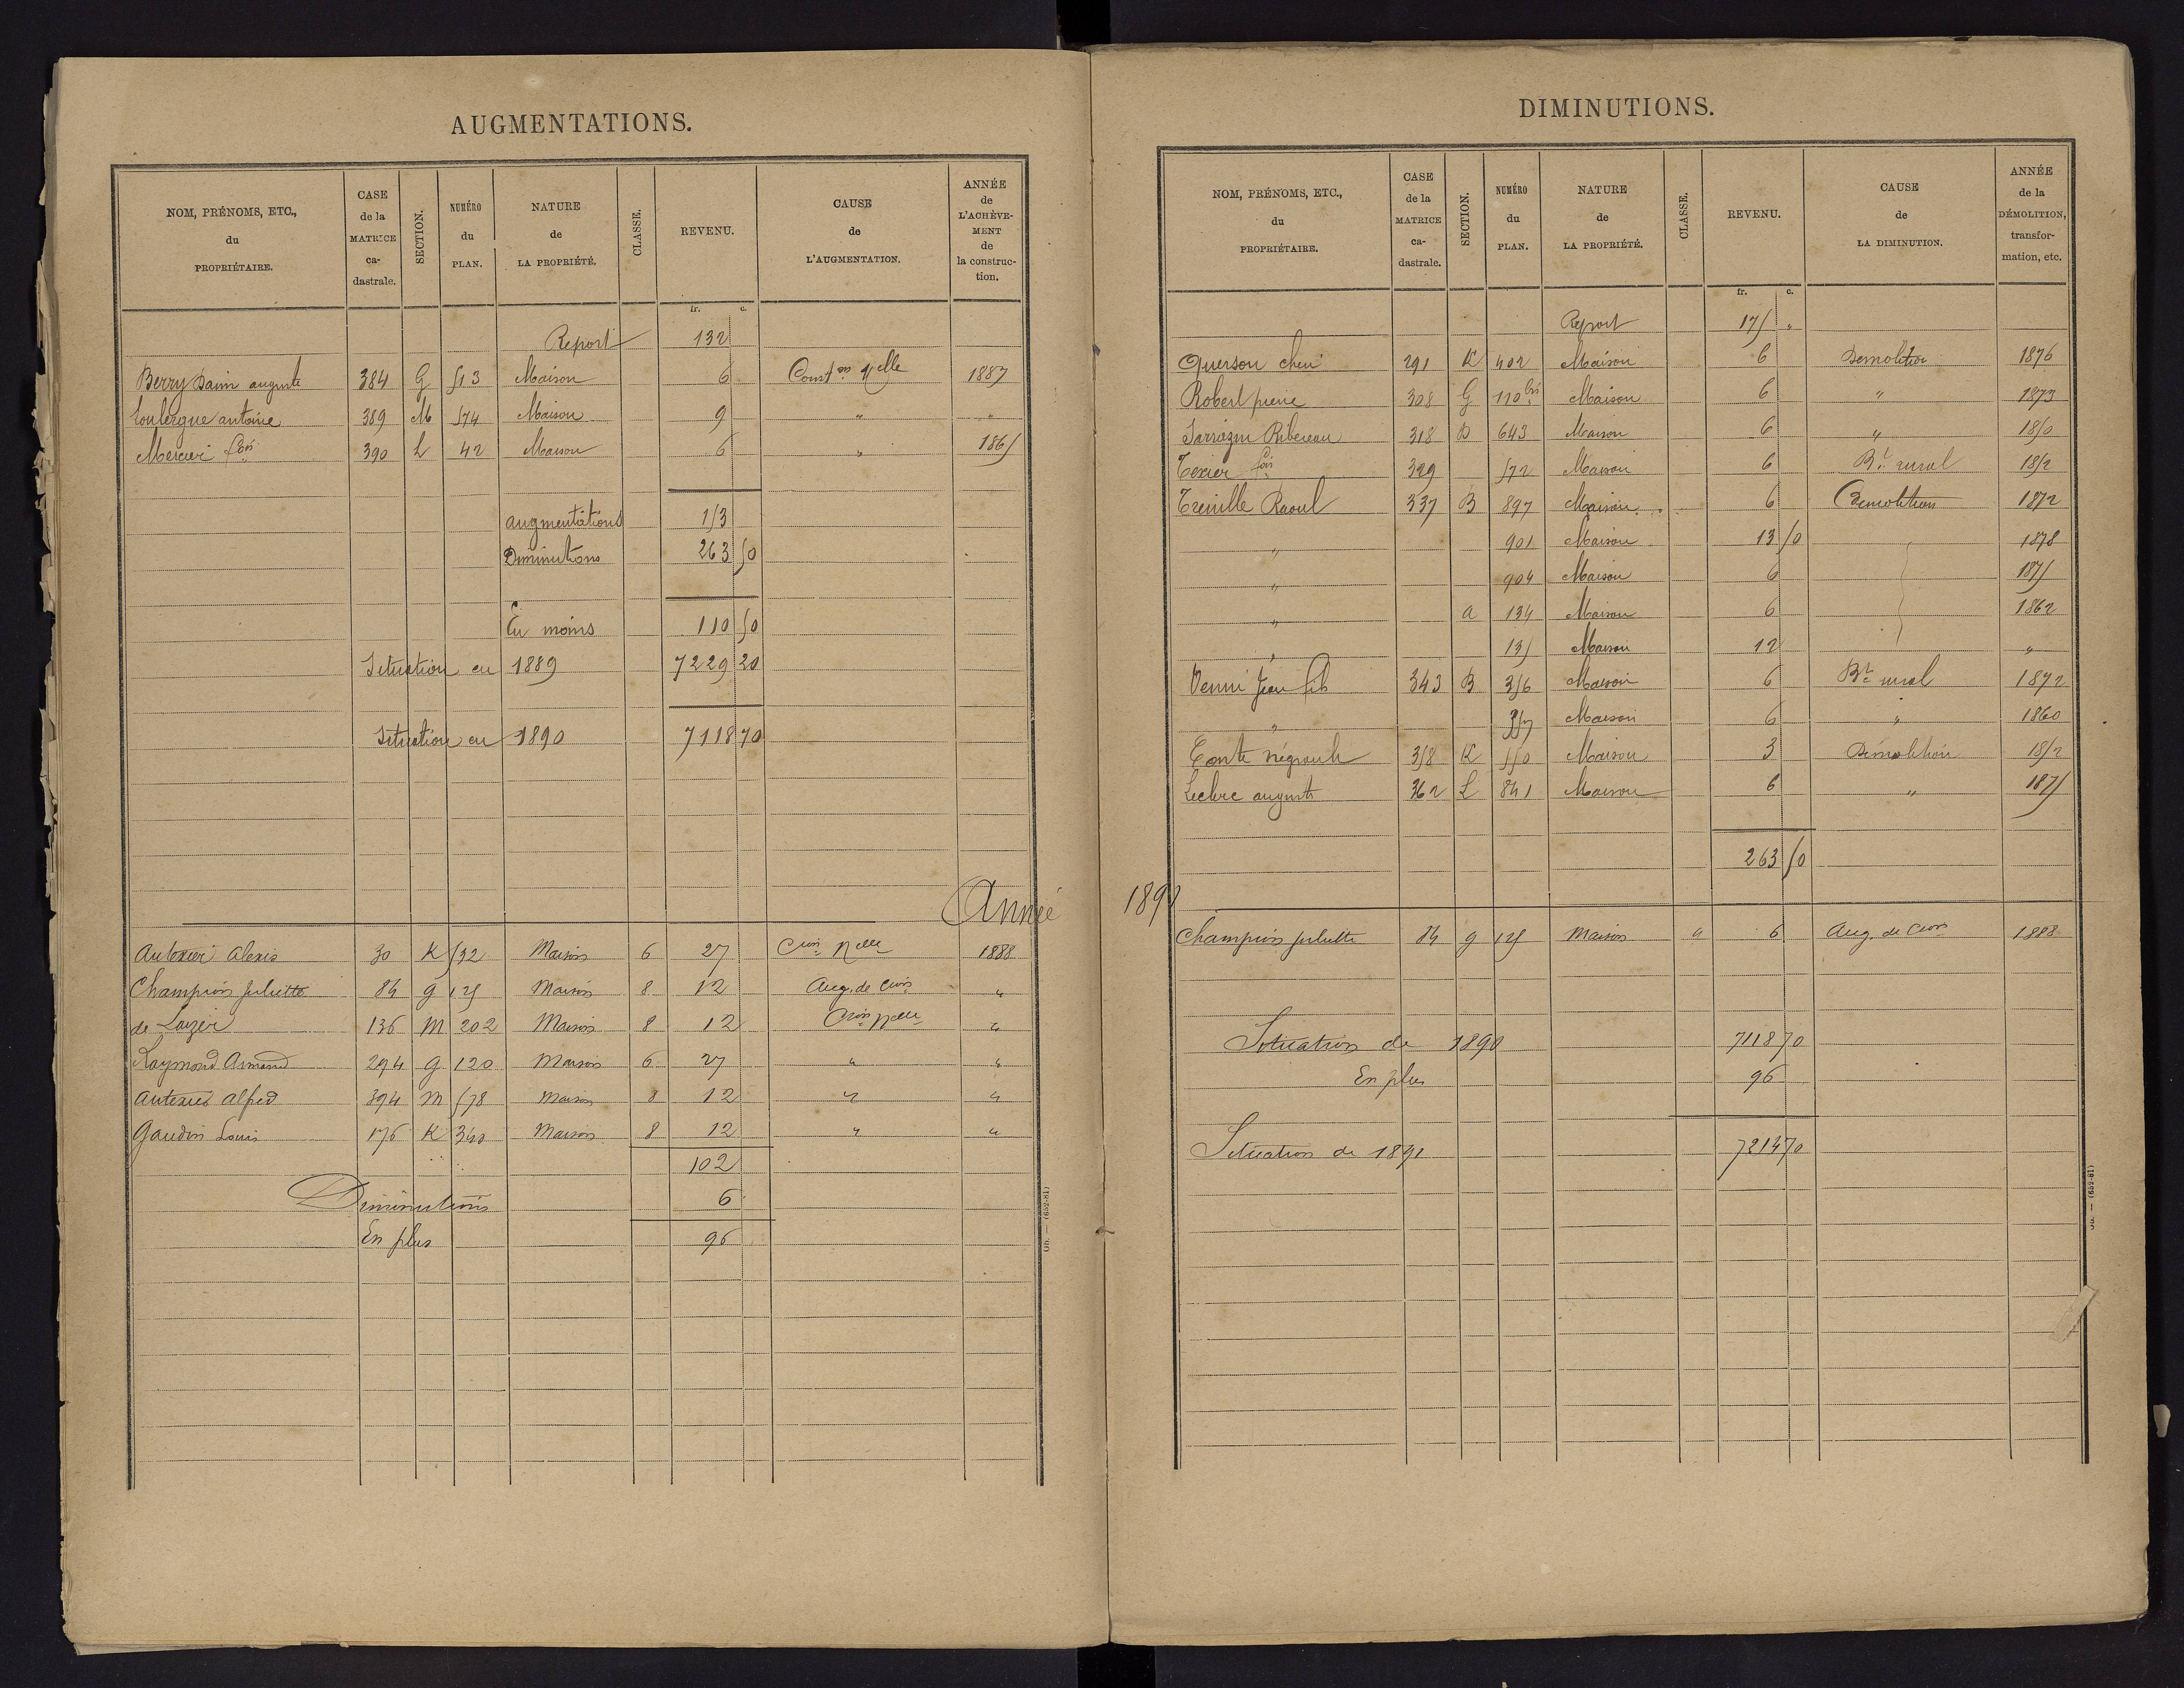 AUGMENTATIONS.
NOM, PRÉNOMS, ETC., du PROPRIÉTAIRE. CASE de la MATRICE ca- dastrale. SECTION. NUMÉRO du PLAN. NATURE de LA PROPRIÉTÉ. CLASSE. REVENU. CAUSE de L'AUGMENTATION. ANNÉE de L'ACHÈVE- MENT de la construc- tion.
fr. c.
Report 132
Berry Daim auguste 384 G 513 Maison 6 Const on Nelle 1887
Loulergue antoine 389 M 574 Maison 9 " "
Mercier fois 390 L 42 Maison 6 " 1865
augmentations 153
Diminutions 263 50
En moins 110 50
Situation en 1889 7229 20
Situation en 1890 7118 70
Année
Autexier Alexis 30 K 532 Maison 6 27 Cion Nelle 1888
Champion Juliette 84 g 125 Maison 8 12 Aug. de Cion "
de Lauzer 136 M 202 Maison 8 12 Cion Nelle "
Raymond Armand 294 g 120 Maison 6 27 " "
Autexier Alfred 394 M 578 Maison 8 12 " "
Gaudin Louis 176 K 340 Maison 8 12 " "
102
Diminutions 6
En plus 96
Un. — (652-81)
DIMINUTIONS.
NOM, PRÉNOMS, ETC., du PROPRIÉTAIRE. CASE de la MATRICE ca- dastrale. SECTION. NUMÉRO du PLAN. NATURE de LA PROPRIÉTÉ. CLASSE. REVENU. CAUSE de LA DIMINUTION. ANNÉE de la DÉMOLITION, transfor- mation, etc.
fr. c.
Report 175 "
Querson 291 K 402 Maison 6 Demolition 1876
Robert pierre 308 G 110 bis Maison 6 " 1873
318 D 643 Maison 6 " 1850
Texier fois 329 572 Maison 6 Bt rural 1852
Treuille Raoul 337 B 897 Maison 6 Demolition 1872
" 901 Maison 13 50 1878
" 904 Maison 6 1875
" a 134 Maison 6 1862
" 135 Maison 12 "
Jean fils 343 B 356 Maison 6 Bt rural 1872
" 357 Maison 6 " 1860
358 K 550 Maison 3 Démolition 1852
Leclerc auguste 362 L 841 Maison 6 " 1875
263 50
1890
Champion Juliette 84 g 125 Maison " 6 Aug. de Cion 1888
Situation de 1890 7118 70
En plus 96
Situation de 1891 7214 70
(652-81)